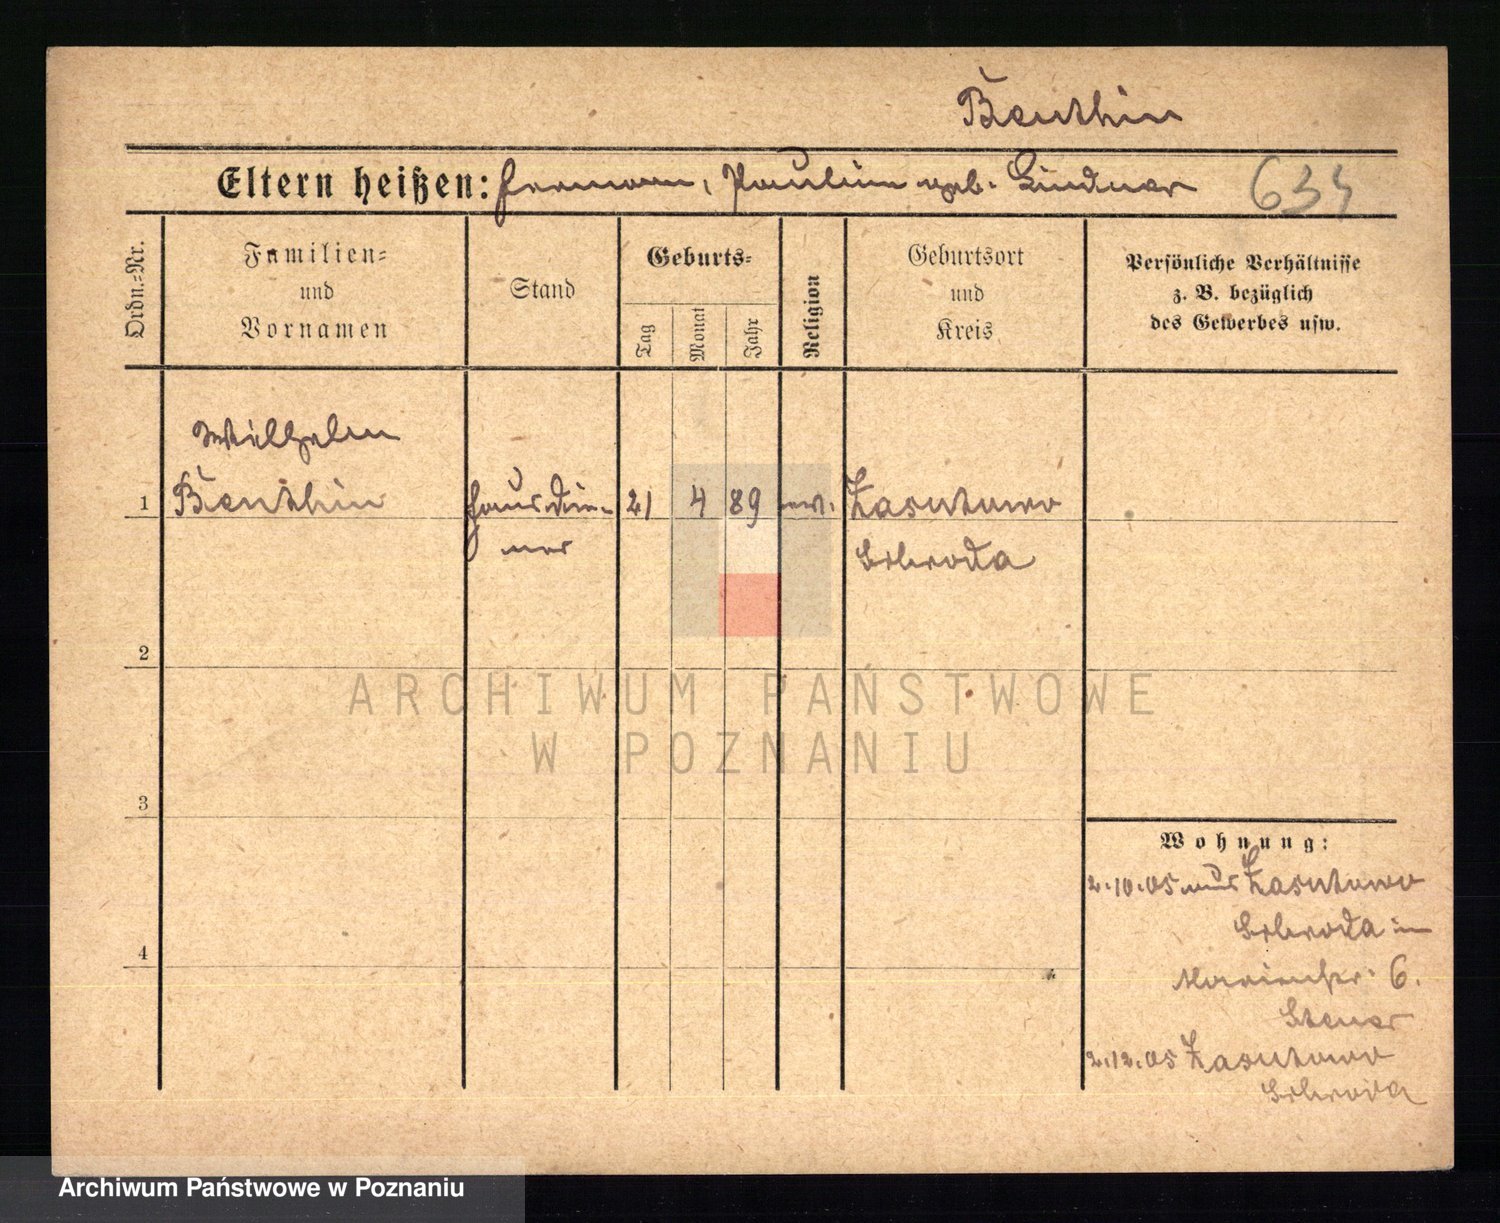 Benthin
Eltern heißen: Hermann, Pauline geb. Lindner 634
Ordn.-Nr.
Familien-
und
Vornamen
Stand
Geburts-
Tag
Monat
Jahr
Religion
Geburtsort
und
Kreis
Persönliche Verhältnisse
z. B. bezüglich
des Gewerbes usw.
Wilhelm
1 Benthin Hausdie- 21 4 89 ev. Zasutowo
ner Schroda
2
ARCHIWUM PAŃSTWOWE
W POZNANIU
3
Wohnung:
2.10.05 aus Zasutowo
Schroda in
6.
4
2.12.05 Zasutowo
Schroda
Archiwum Państwowe w Poznaniu